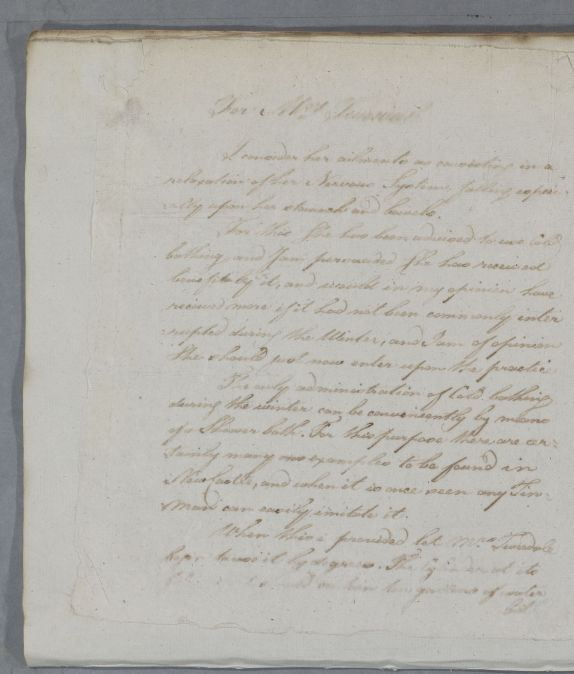 For Mrs.
I consider her ailments as consisting in a
relaxation of her Nervous System falling especi-
ally upon her stomach and bowels.
For this She has been advised to use Cold
bathing, and I am persuaded She has received
benefit by it, and would in my opinion have
received more if it had not been commonly inter
rupted during the Winter, and I am of opinion
She should not now enter upon the practice
The only administration of Cold bathing
during the winter can be conveniently by means
of a Shower bath. For this purpose there are cer-
tainly many examples to be found in
Newcastle, and when it is once seen any Tin-
man can easily imitate it.
When this is provided let Mrs.
begin to use it by degrees. The at its
of water
but